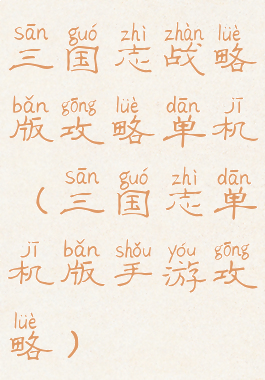 sān guó zhì zhàn lüè
三国志战略
bǎn gōng lüè dān jī
版攻略单机
sān guó zhì dān
（三国志单
jī bǎn shǒu yóu gōng
机版手游攻
lüè
略）